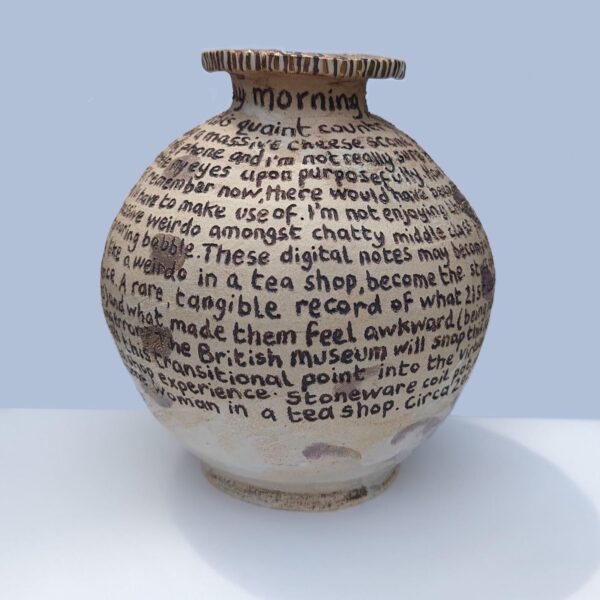 y morning
quaint count
massive cheese sco
phone and i'm not really su
my eyes upon purposefully.
remember now, there would have be
have to make use of. I'm not enjoying
weirdo amongst chatty middle class
babble. These digital notes may becom
a weirdo in a tea shop, become the st
A rare, tangible record of what 21s
and what made them feel awkward (being
he British Museum will snap th
this transitional point into the vir
experience. Stoneware coil po
woman in a tea shop. Circa 2